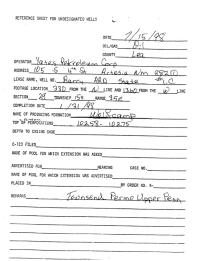 REFERENCE SHEET FOR UNDESIGNATED WELLS
DATE 7/15/98
OIL/GAS Oil
COUNTY Lea
OPERATOR Yates Petroleum Corp
ADDRESS 105 S 4th St Artesia Nm 88210
LEASE NAME, WELL NO. Barry State #1
FOOTAGE LOCATION 330 FROM THE N LINE AND FROM THE W LINE
SECTION 28 TOWNSHIP 15s RANGE 35e
COMPLETION DATE 1/31/98
NAME OF PRODUCING FORMATION Wolfcamp
TOP OF PERFORATIONS 10258-10275
DEPTH TO CASING SHOE
C-123 FILED
NAME OF POOL FOR WHICH EXTENSION WAS ASKED
ADVERTISED FOR HEARING CASE NO.
NAME OF POOL FOR WHICH EXTENSION WAS ADVERTISED
PLACED IN BY ORDER NO. R-
REMARKS Townsend Permo Upper Penn